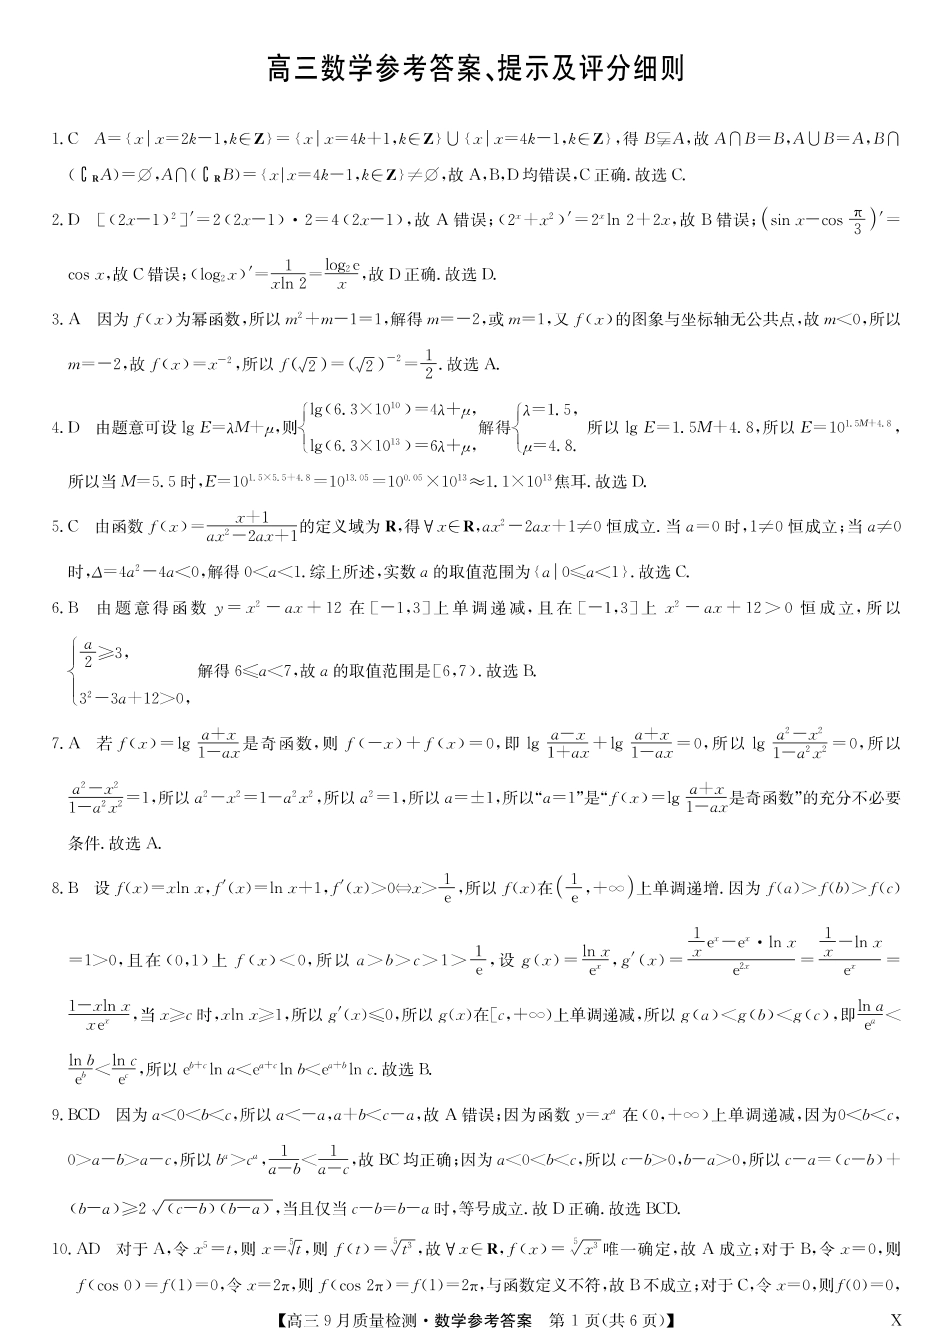 高三数学参考答案、提示及评分细则
1. C　A={x|x=2k-1,k∈Z}={x|x=4k+1,k∈Z}∪{x|x=4k-1,k∈Z},得 B⫋A,故 A∩B=B,A∪B=A,B∩
(∁RA)=∅,A∩(∁RB)={x|x=4k-1,k∈Z}≠∅,故 A,B,D 均错误,C 正确. 故选 C.
2. D　[(2x-1)²]′=2(2x-1)·2=4(2x-1),故 A 错误;(2ˣ+x²)′=2ˣln 2+2x,故 B 错误;(sin x-cos π/3)′=
cos x,故 C 错误;(log₂x)′=1/(xln 2)=log₂e/x,故 D 正确. 故选 D.
3. A　因为 f(x)为幂函数,所以 m²+m-1=1,解得 m=-2,或 m=1,又 f(x)的图象与坐标轴无公共点,故 m<0,所以
m=-2,故 f(x)=x⁻²,所以 f(√2)=(√2)⁻²=1/2. 故选 A.
4. D　由题意可设 lg E=λM+μ,则{lg(6.3×10¹⁰)=4λ+μ, lg(6.3×10¹³)=6λ+μ, 解得{λ=1.5, μ=4.8. 所以 lg E=1.5M+4.8,所以 E=10^(1.5M+4.8),
所以当 M=5.5 时,E=10^(1.5×5.5+4.8)=10^(13.05)=10^(0.05)×10¹³≈1.1×10¹³焦耳. 故选 D.
5. C　由函数 f(x)=(x+1)/(ax²-2ax+1)的定义域为 R,得∀x∈R,ax²-2ax+1≠0 恒成立. 当 a=0 时,1≠0 恒成立;当 a≠0
时,Δ=4a²-4a<0,解得 0<a<1. 综上所述,实数 a 的取值范围为{a|0≤a<1}. 故选 C.
6. B　由题意得函数 y=x²-ax+12 在[-1,3]上单调递减,且在[-1,3]上 x²-ax+12>0 恒成立,所以
{a/2≥3, 3²-3a+12>0, 解得 6≤a<7,故 a 的取值范围是[6,7). 故选 B.
7. A　若 f(x)=lg (a+x)/(1-ax)是奇函数,则 f(-x)+f(x)=0,即 lg (a-x)/(1+ax)+lg (a+x)/(1-ax)=0,所以 lg (a²-x²)/(1-a²x²)=0,所以
(a²-x²)/(1-a²x²)=1,所以 a²-x²=1-a²x²,所以 a²=1,所以 a=±1,所以“a=1”是“f(x)=lg (a+x)/(1-ax)是奇函数”的充分不必要
条件. 故选 A.
8. B　设 f(x)=xln x,f′(x)=ln x+1,f′(x)>0⇔x>1/e,所以 f(x)在(1/e,+∞)上单调递增. 因为 f(a)>f(b)>f(c)
=1>0,且在(0,1)上 f(x)<0,所以 a>b>c>1>1/e,设 g(x)=ln x/eˣ,g′(x)=(1/x eˣ-eˣ·ln x)/e²ˣ=(1/x-ln x)/eˣ=
(1-xln x)/(xeˣ),当 x≥c 时,xln x≥1,所以 g′(x)≤0,所以 g(x)在[c,+∞)上单调递减,所以 g(a)<g(b)<g(c),即 ln a/e^a<
ln b/e^b<ln c/e^c,所以 e^(b+c)ln a<e^(a+c)ln b<e^(a+b)ln c. 故选 B.
9. BCD　因为 a<0<b<c,所以 a<-a,a+b<c-a,故 A 错误;因为函数 y=x^a 在(0,+∞)上单调递减,因为0<b<c,
0>a-b>a-c,所以 b^a>c^a,1/(a-b)<1/(a-c),故 BC 均正确;因为 a<0<b<c,所以 c-b>0,b-a>0,所以 c-a=(c-b)+
(b-a)≥2√((c-b)(b-a)),当且仅当 c-b=b-a 时,等号成立. 故 D 正确. 故选 BCD.
10. AD　对于 A,令 x⁵=t,则 x=⁵√t,则 f(t)=⁵√t³,故∀x∈R,f(x)=⁵√x³唯一确定,故 A 成立;对于 B,令 x=0,则
f(cos 0)=f(1)=0,令 x=2π,则 f(cos 2π)=f(1)=2π,与函数定义不符,故 B 不成立;对于 C,令 x=0,则f(0)=0,
【高三 9 月质量检测·数学参考答案　第 1 页(共 6 页)】　X